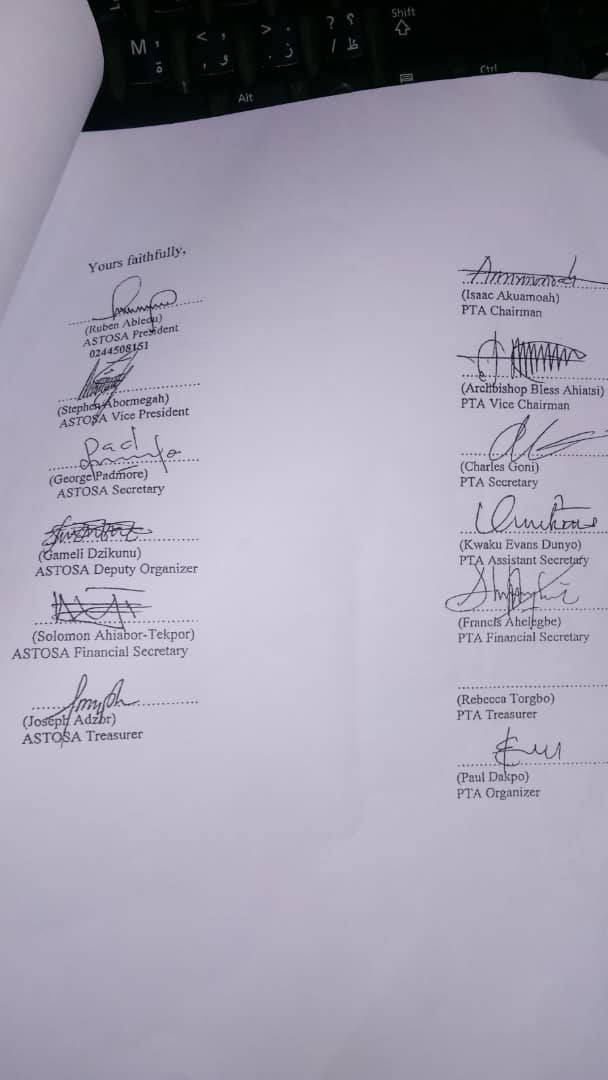 M ة
< , و
> . ز
? / ؟ ظ
Shift
Alt
Ctrl
Yours faithfully,
(Ruben Abledu)
ASTOSA President
0244508151
(Stephen Abormegah)
ASTOSA Vice President
Pad
(George Padmore)
ASTOSA Secretary
(Gameli Dzikunu)
ASTOSA Deputy Organizer
(Solomon Ahiabor-Tekpor)
ASTOSA Financial Secretary
(Joseph Adzor)
ASTOSA Treasurer
(Isaac Akuamoah)
PTA Chairman
(Archbishop Bless Ahiatsi)
PTA Vice Chairman
(Charles Goni)
PTA Secretary
(Kwaku Evans Dunyo)
PTA Assistant Secretary
(Francis Ahelegbe)
PTA Financial Secretary
(Rebecca Torgbo)
PTA Treasurer
(Paul Dakpo)
PTA Organizer